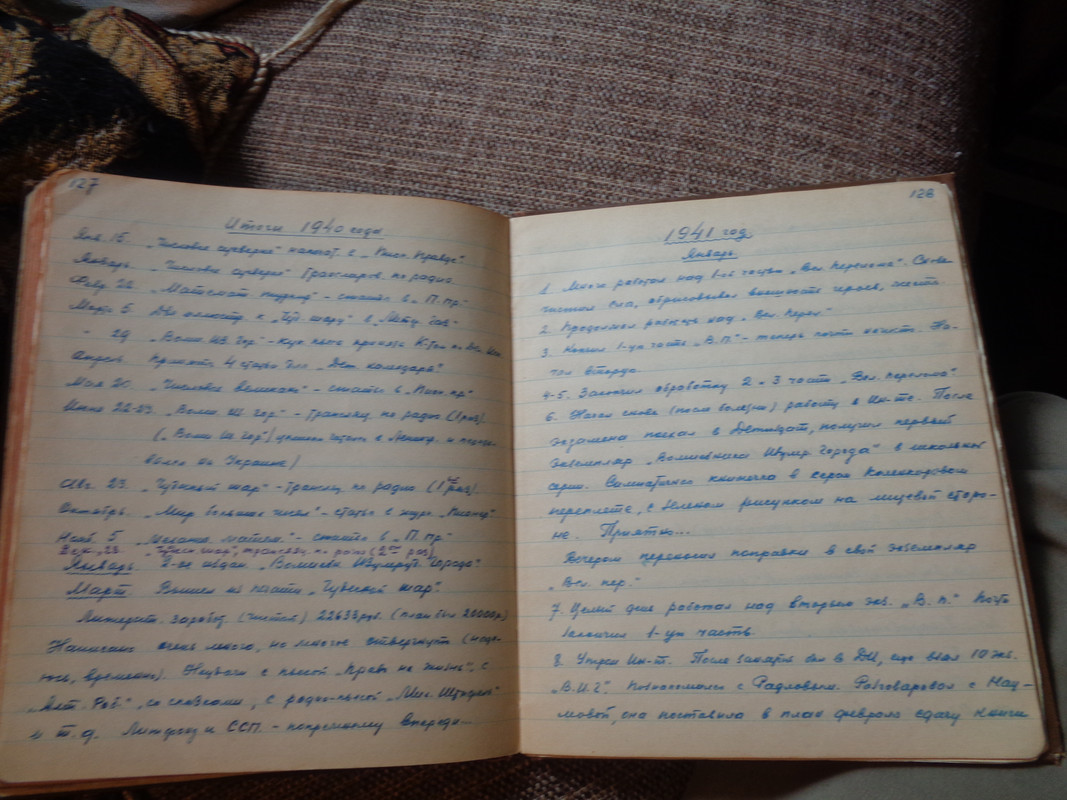 127
Итоги 1940 года
Янв. 15. „Числовые суеверия" напечат. в „Пион. Правде"
Январь „Числовые суеверия" транслиров. по радио
Февр. 22. „Математ. " – статья в „П. пр."
Март 5. Две к „Чуд. шару" в
" 29 „Волш. Из. Гор." –
Апрель Приняты 4 статьи для „Дет. календаря"
Мая 20. „Числовые великаны" – статья в „Пион. пр."
Июнь 22-23. „Волш. Из. гор." – трансляц. по радио (1 раз).
(„Волш. Из. Гор.") читали в Ленингр. и
на Украине)
Авг. 23. „Чудесный шар" – трансляц. по радио (1ый раз).
Октябрь. „Мир больших чисел" – статья в журн. „Пионер"
Нояб. 5 матем." – статья в „П. пр."
Дек., 28. "Чудесн. шар", трансляц. по радио (2ой раз)
Январь 2-ое издан. „Волшебн. Изумруд. Города"
Март Вышел из печати „Чудесный шар".
Литерат. заработ. (чистый) 22633 руб. (план был 20000 р.)
Написано очень много, но многое отвергнуто (наде-
юсь, временно). Неудачи с пьесой „Право на жизнь", с
„ ", со сказками, с радио-пьесой
и т. д. Литфонд и ССП – попрежнему впереди...
128
1941 год
Январь.
1. Много работал над 1-ой частью „Вел. Перелома". Снова
чистил сла, обрисовывал внешность героев, жесты.
2. Продолжал работать над „Вел. Перел."
3. Кончил 1-ую часть „В. П." – теперь почти начисто. На-
чал вторую.
4-5. Закончил обработку 2 и 3 части „Вел. перелома".
6. Начал снова (после болезни) работу в Ин-те. После
экзамена поехал в Детиздат, получил первый
экземпляр „Волшебника Изумр. Города" в школьной
серии. Симпатичная книжечка в сером коленкоровом
переплете, с зеленым рисунком на лицевой сторо-
не. Приятно...
Вечером переносил поправки в свой экземпляр
„Вел. пер."
7. Целый день работал над вторым экз. „В. п." Почти
закончил 1-ую часть.
8. Утром Ин-т. После занятий был в ДИ, еще взял 10 экз.
„В.И.Г." Познакомился с Радловым. Разговаривал с Нау-
мовой, она поставила в план февраля сдачу книги